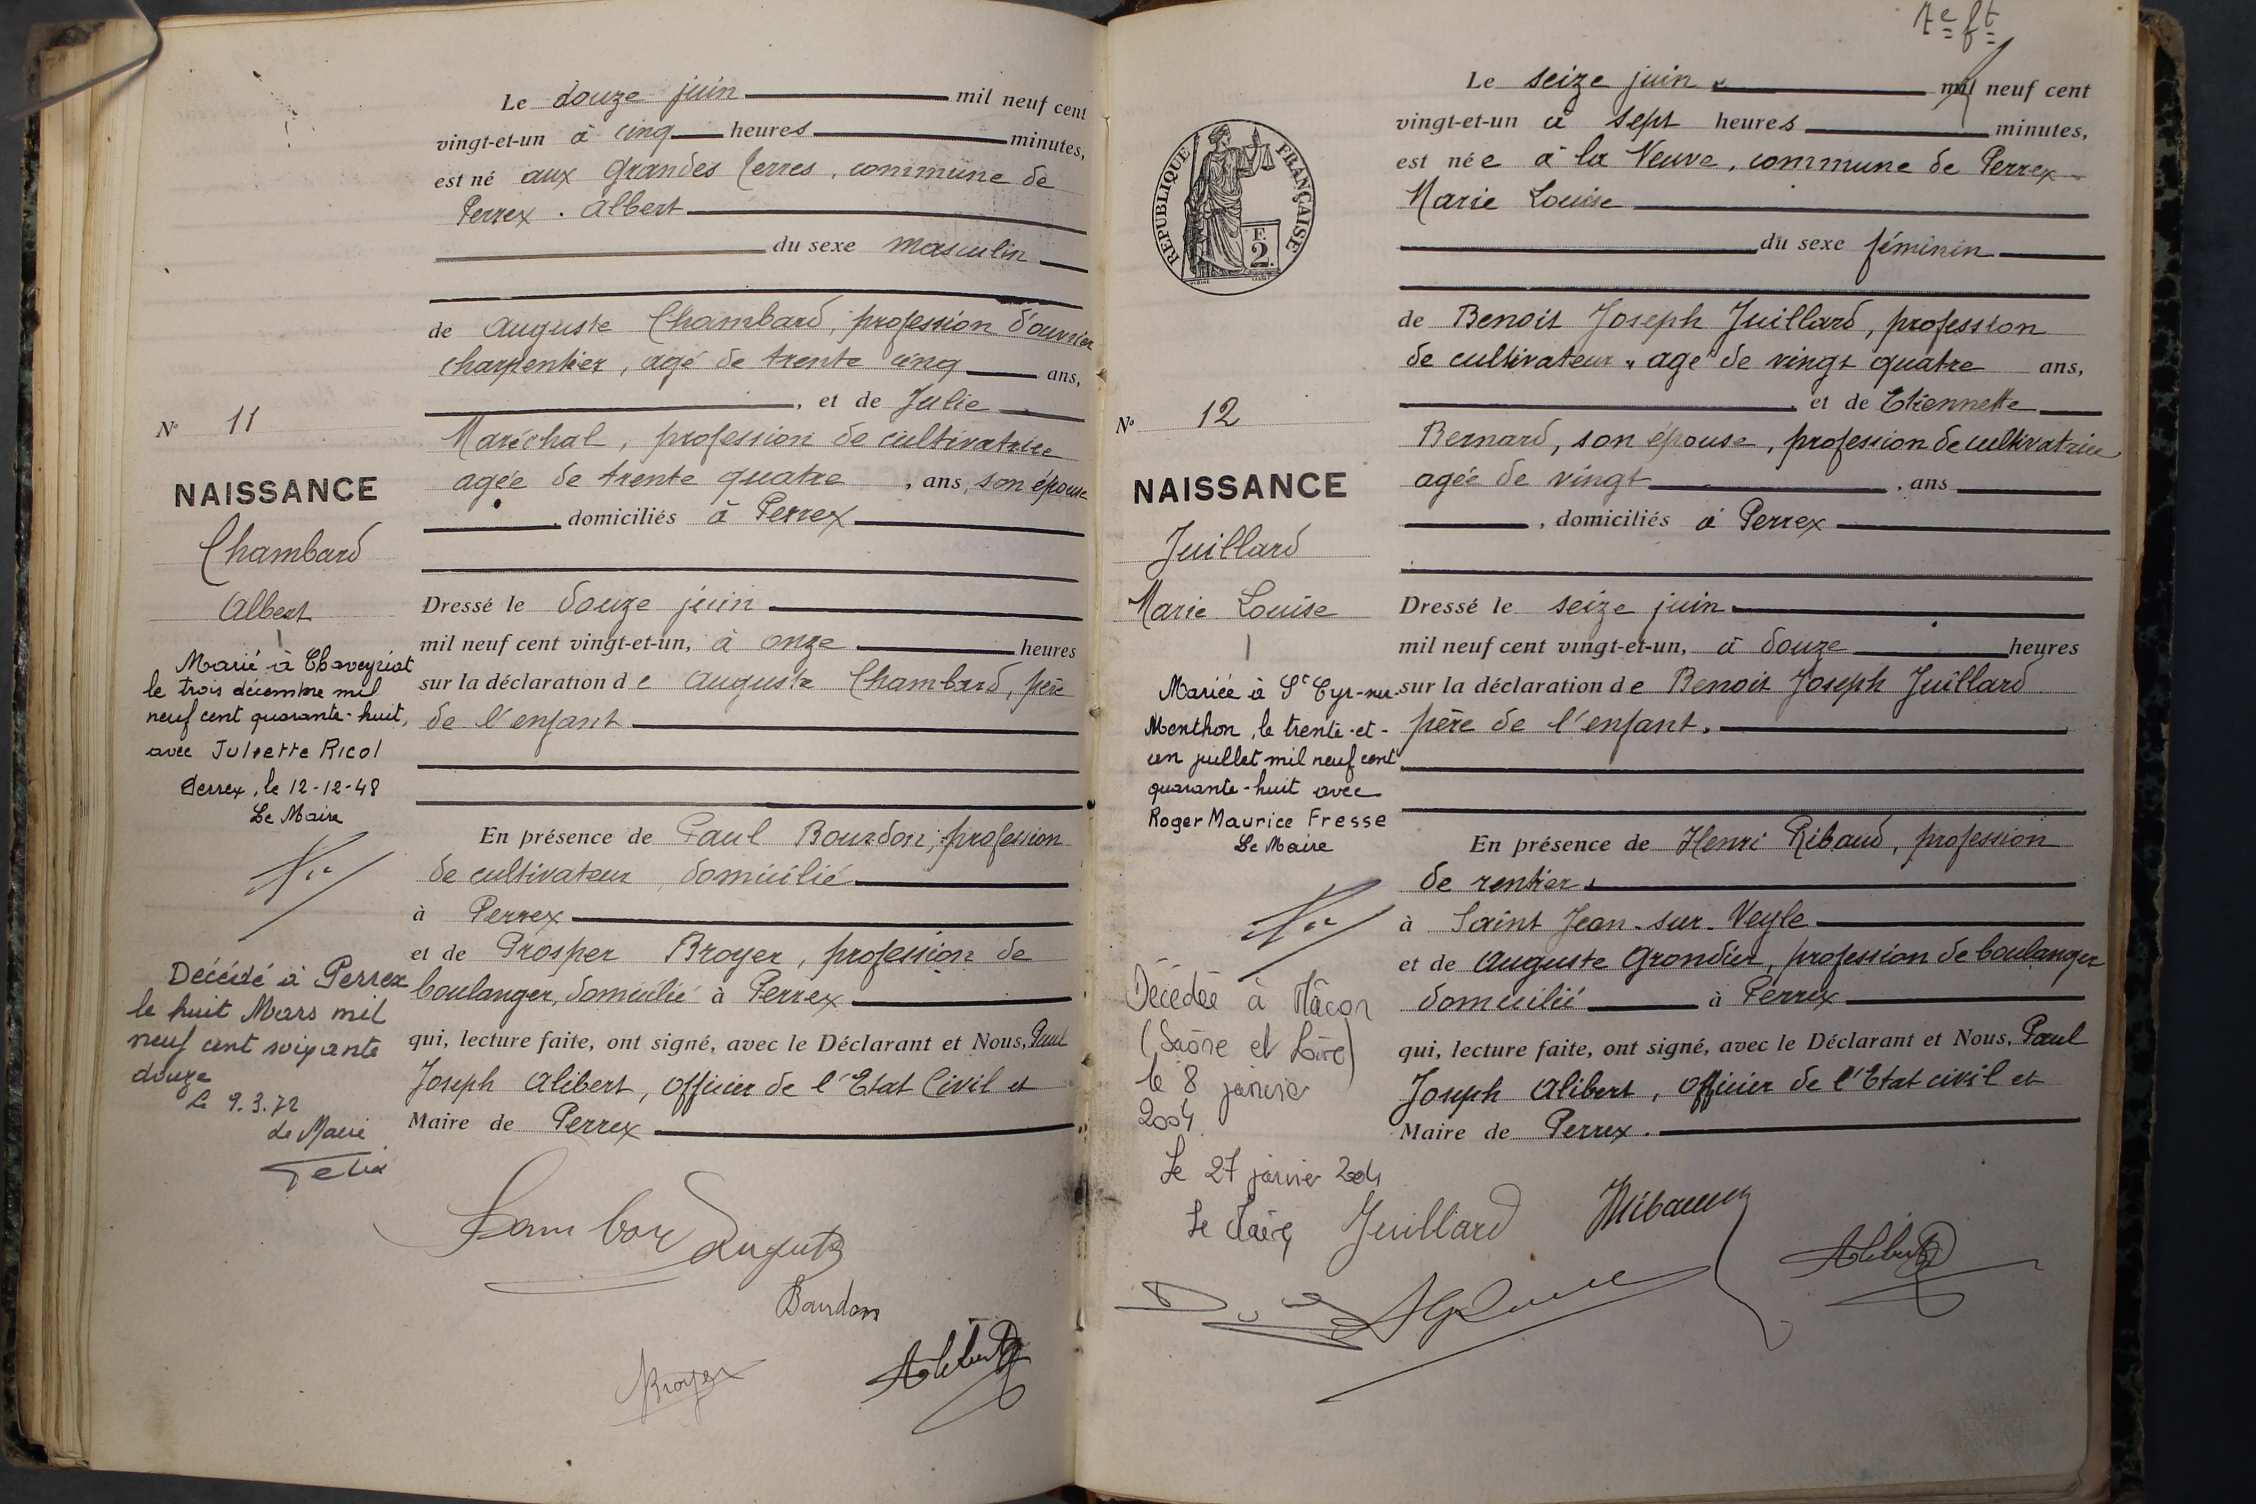 Le douze juin mil neuf cent
vingt-et-un à cinq heures minutes,
est né aux Grandes Terres, commune de
Perrex. Albert
du sexe masculin
de Auguste Chambard, profession d'ouvrier
charpentier, agé de trente cinq ans,
, et de Julie
Maréchal, profession de cultivatrice
agée de trente quatre , ans, son épouse
, domiciliés à Perrex
Dressé le douze juin
mil neuf cent vingt-et-un, à onze heures
sur la déclaration de Auguste Chambard, père
de l'enfant
En présence de Paul Bourdon, profession
de cultivateur domicilié
à Perrex
et de Prosper Broyer, profession de
boulanger, domicilié à Perrex
qui, lecture faite, ont signé, avec le Déclarant et Nous, Paul
Joseph Alibert, officier de l'Etat Civil et
Maire de Perrex
Auguste
Bourdon
Broyer
Alibert
N° 11
NAISSANCE
Chambard
Albert
Marié à Chaveyriat
le trois décembre mil
neuf cent quarante-huit,
avec Juliette Ricol
Perrex, le 12-12-48
Le Maire
Décédé à Perrex
le huit Mars mil
neuf cent soixante
douze
Le 9.3.72
Le Maire
7e ft
Le seize juin mil neuf cent
vingt-et-un à sept heures minutes,
est née à la Veuve, commune de Perrex
Marie Louise
du sexe féminin
de Benoit Joseph Juillard, profession
de cultivateur, agé de vingt quatre ans,
, et de Etiennette
Bernard, son épouse, profession de cultivatrice
agée de vingt , ans
, domiciliés à Perrex
Dressé le seize juin
mil neuf cent vingt-et-un, à douze heures
sur la déclaration de Benoit Joseph Juillard
père de l'enfant.
En présence de Henri Ribaud, profession
de rentier,
à Saint Jean-sur-Veyle
et de Auguste Grondier, profession de boulanger
domicilié à Perrex
qui, lecture faite, ont signé, avec le Déclarant et Nous, Paul
Joseph Alibert, officier de l'Etat civil et
Maire de Perrex.
Juillard
Alibert
REPUBLIQUE FRANÇAISE
F.
2.
N° 12
NAISSANCE
Juillard
Marie Louise
Mariée à St Cyr-sur-
Menthon, le trente-et-
un juillet mil neuf cent
quarante-huit avec
Roger Maurice Fresse
Le Maire
Décédée à Mâcon
(Saône et Loire)
le 8 janvier
2004
Le 27 janvier 2004
Le Maire,